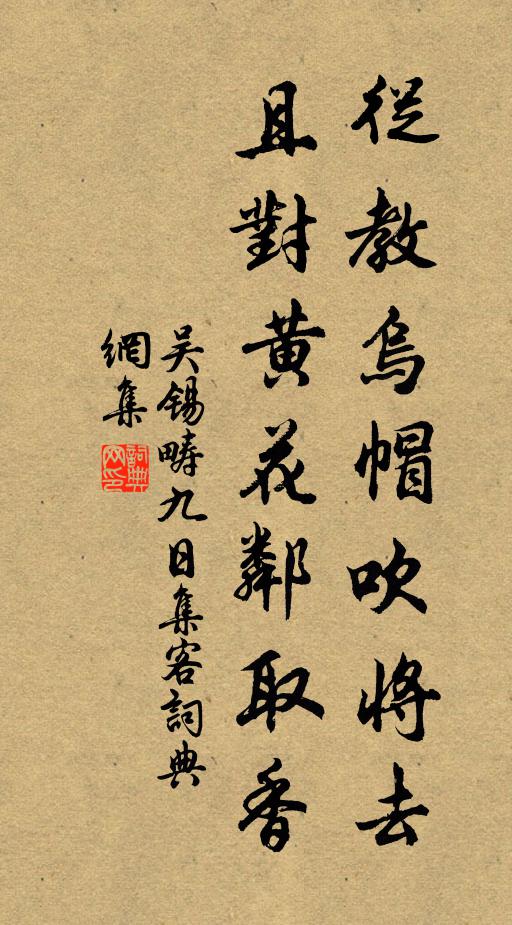 從教烏帽吹將去
且對黄花鄰取香
吴錫疇九日集客詞典
網集
詞典
网印